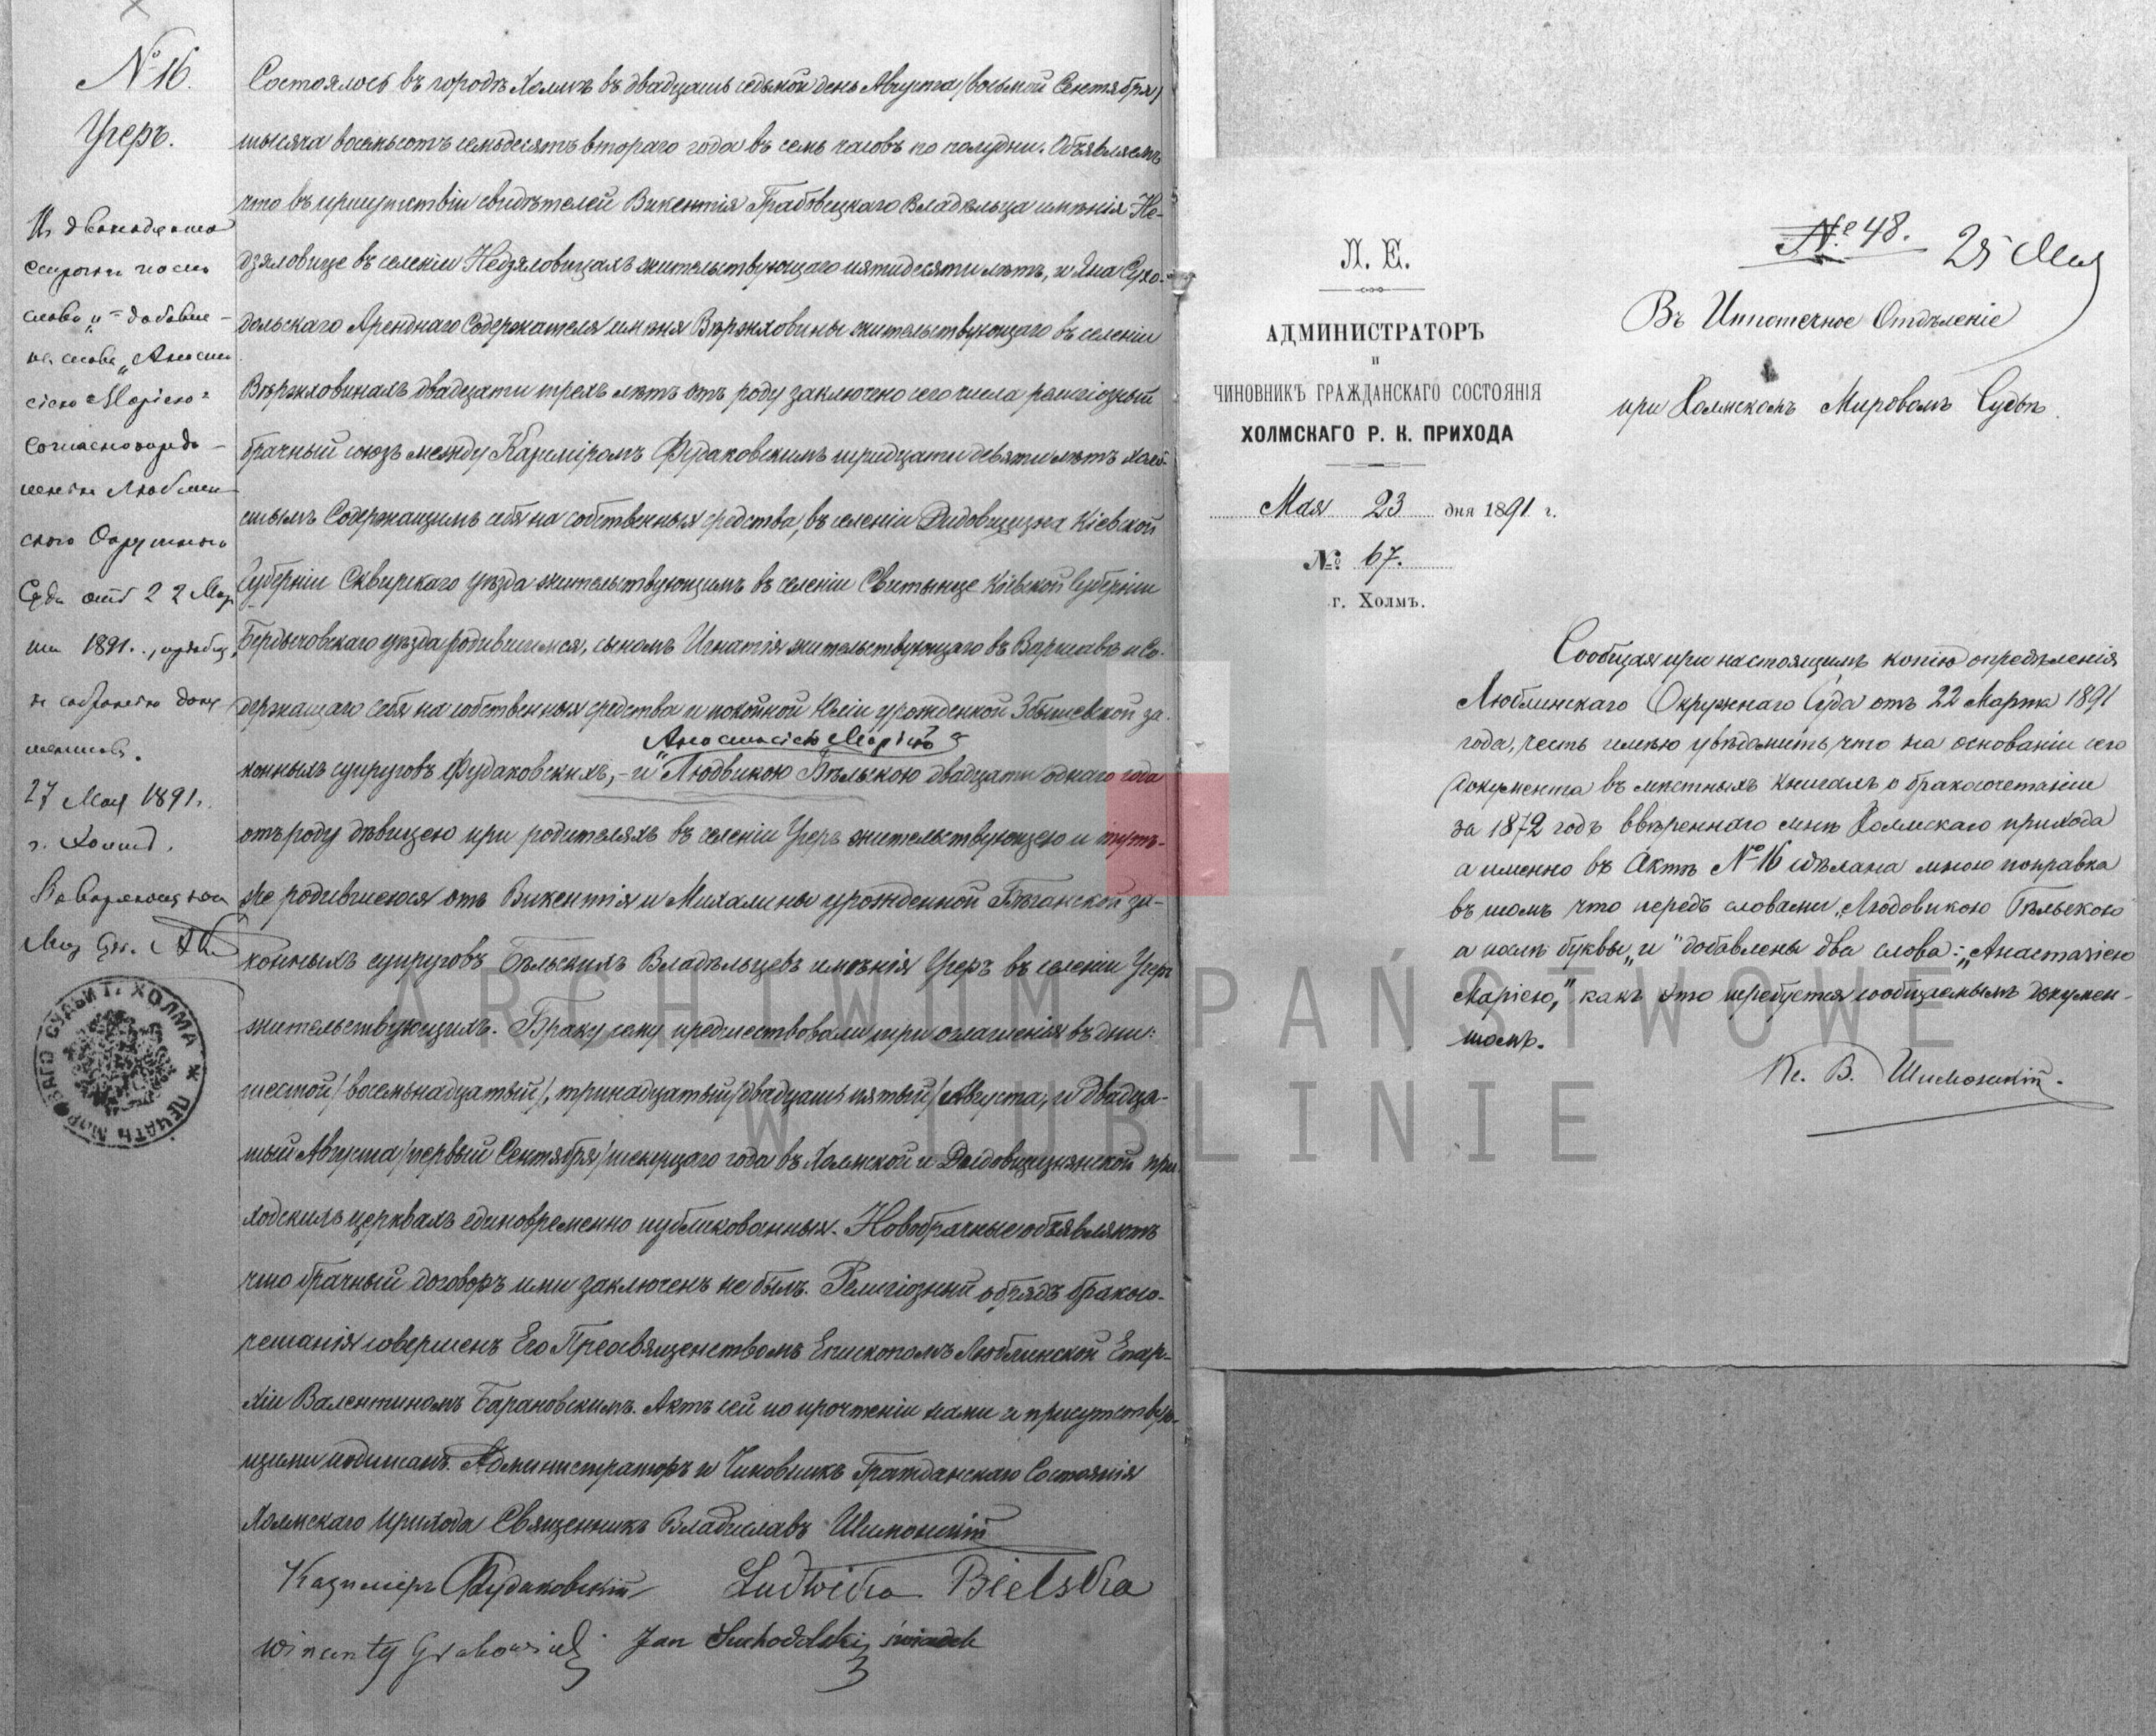 № 16.
Угеръ.
Состоялось въ городѣ Холмѣ въ двадцать седьмой день Августа /восьмой Сентября/
тысяча восемьсотъ семьдесятъ втораго года въ семь часовъ по полудни. Объявляемъ
что въ присутствіи свидѣтелей Викентія Грабовецкаго Владѣльца имѣнія Не-
дзяловице въ селеніи Недзяловицахъ жительствующаго пятидесяти лѣтъ, и Яна Сухо-
дольскаго Аренднаго Содержателя имѣнія Вѣржховины жительствующаго въ селеніи
Вѣржховинахъ двадцати трехъ лѣтъ отъ роду заключено сего числа религіозный
брачный союзъ между Казиміромъ Фудаковскимъ тридцати девяти лѣтъ холо-
стымъ Содержащимъ себя на собственныя средства, въ селеніи Дидовщизна Кіевской
Губерніи Сквирскаго уѣзда жительствующимъ въ селеніи Свитынце Кіевской Губерніи
Бердычовскаго уѣзда родившимся, сыномъ Игнатія жительствующаго въ Варшавѣ и Со-
держащаго себя на собственныя средства и покойной Юліи урожденной Збышевской за-
Анастасіею Маріею
конныхъ супруговъ Фудаковскихъ, - и Людвикою Бѣльскою двадцати однаго года
отъ роду дѣвицею при родителяхъ въ селеніи Угеръ жительствующею и тутъ-
же родившеюся отъ Викентія и Михалины урожденной за-
конныхъ супруговъ Бѣльскихъ Владѣльцевъ имѣнія Угеръ въ селеніи Угеръ
жительствующихъ. Браку сему предшествовали три оглашенія въ дни:
шестой /восемьнадцатый/, тринадцатый /двадцать пятый/ Августа, и двадца-
тый Августа /первый Сентября/ текущаго года въ Холмской и Дидовщизнянской при-
ходскихъ церквахъ единовременно публикованныя. Новобрачные объявляютъ
что брачный договоръ ими заключенъ не былъ. Религіозный обрядъ бракосо-
четанія совершенъ Его Преосвященствомъ Епископомъ Люблинской Епар-
хіи Валентиномъ Барановскимъ. Актъ сей по прочтеніи нами и присутствую-
щими подписанъ. Администраторъ и Чиновникъ Гражданскаго Состоянія
Холмскаго прихода Священникъ Владиславъ Шимонскій
Казиміръ Фудаковскій Ludwika Bielska
Wincenty Grabowiecki Jan Suchodolski świadek
слова „и“ добавле-
ны слова „Анаста-
сіею Маріею“
согласно опредѣ-
ленію Люблин-
скаго Окружнаго
Суда отъ 22 Мар-
та 1891 г.,
27 Мая 1891 г.
г. Холмъ.
ПЕЧАТЬ МИРОВАГО СУДЬИ Г. ХОЛМА
Л. Е.
АДМИНИСТРАТОРЪ
и
ЧИНОВНИКЪ ГРАЖДАНСКАГО СОСТОЯНІЯ
ХОЛМСКАГО Р. К. ПРИХОДА
Мая 23 дня 1891 г.
№ 67.
г. Холмъ.
№ 48. 25 Мая
Въ Ипотечное Отдѣленіе
при Холмскомъ Мировомъ Судѣ.
Сообщая при настоящимъ копію опредѣленія
Люблинскаго Окружнаго Суда отъ 22 Марта 1891
года, честь имѣю увѣдомить, что на основаніи сего
документа въ мѣстныхъ книгахъ о бракосочетаніи
за 1872 годъ ввѣреннаго мнѣ Холмскаго прихода
а именно въ Актѣ № 16 сдѣлана мною поправка
въ томъ что передъ словами „Людовикою Бѣльскою“
а послѣ буквы „и“ добавлены два слова: „Анастазіею
Маріею,“ какъ это требуется сообщаемымъ докумен-
томъ.
Кс. В. Шимонскій.
ARCHIWUM PAŃSTWOWE
W LUBLINIE